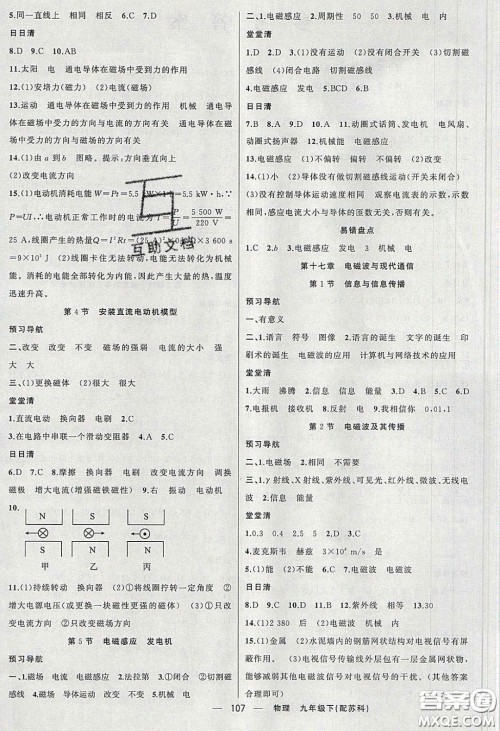 5.同一直线上 相同 相反 6.C
日日清
8.D 9.C 10.AB
11.太阳 电 通电导体在磁场中受到力的作用
12.(1)安培力(磁力) (2)电流(磁场)
13.运动 通电导体在磁场中受到力的作用 机械 通电导
体在磁场中受力的方向与电流方向有关 通电导体在磁
场中受力的方向与磁场的方向有关
14.(1)由a到b 图略。提示:方向垂直向上
(2)改变电流方向
15.(1)电动机消耗电能
P=UI,∴电动机正常工作时的电流
25 A,线圈产生的热量
=9×10⁶ J (2)线圈卡住无法转动,电能无法转化为机
械能,消耗的电能全部转化为内能,因此产生大量的热,温度
迅速升高。
第4节 安装直流电动机模型
预习导航
二、改变 不变 磁场的强弱 电流的大小 大 强
大
三、(1)更换磁体 (2)很大 很大
堂堂清
1.直流电动机 换向器 电刷 2.D
3.在电路中串联一个滑动变阻器 4.A 5.C
日日清
6.D 7.C 8.摩擦 换向器 电刷 改变电流方向 调换
磁极 增大电流(增强磁体磁性) 9.右 振动 电动机
10.
N S S
S N N
甲 乙 丙
11.(1)持续转动 换向器 ①将线圈拧转一定角度 ②
增大电源电压(或更换一块磁性更强的磁体) (3)①只改
变电流方向 ②只改变磁场方向
第5节 电磁感应 发电机
预习导航
一、磁场 运动 电磁感应 法拉第 1.(1)闭合 (2)切
割磁感线 2.磁感线 导体运动 改变 ①不变 ②改变
二、1.电磁感应 2.周期性 50 50 3.机械 电 内
堂堂清
1.D 2.D 3.(1)没有运动 (2)没有闭合开关 (3)切割磁
感线 (4)闭合电路 切割磁感线
4.电磁感应 5.BCD 6.B
日日清
7.B 8.D 9.C 10.D 11.动圈式话筒、发电机 电风扇、
动圈式扬声器 12.机械能 电磁感应
13.电磁感应 (1)不偏转 偏转 (2)不偏转 小
14.(1)磁体太重 (2)没有做切割磁感线运动(开关未闭合)
(3)没有控制导体运动速度相同 观察电流表的示数或指
针偏转角度,感应电流大小与导体的匝数无关,否则有关。
易错盘点
1.C 2.b 3.电磁感应 发电 3 机械 电
第十七章 电磁波与现代通信
第1节 信息与信息传播
预习导航
一、有意义
二、1.语言 符号 图像 2.语言的诞生 文字的诞生 印
刷术的诞生 电磁波的应用 计算机与网络技术的应用
堂堂清
1.大雨 沸腾 2.信息 信息 能量 3.B 4.D 5.C 6.D
7.电报机 接收机 8.反射 电 9.我相信你 0,01,1
第2节 电磁波及其传播
预习导航
二、1.电磁场 2.相同 不需要
三、1.γ射线、X射线、紫外线、可见光、红外线、微波、无线电
波
堂堂清
1.0.3 0.4 2.5 5 2.C 3.D
4.麦克斯韦 赫兹 3×10⁸ m/s 是 5.C 6.A
7.(1)能 (2)不能 电磁波 C
日日清
8.D 9.C 10.B 11.C 12.紫外线 相等 13.10
14.波速 2
15.(1)2 380 后 (2)电磁波 D
16.(1)金属 (2)水泥墙内的钢筋网状结构对电视信号有
屏蔽作用。 (3)电视信号不受电话线、网线的干扰,也不受
其他电磁波干扰或电视信号对电视信号的干扰,或干扰很
小(合理答案均可)
107 物理 九年级下(配苏科)
互助文档
答案圈
MXQE.COM